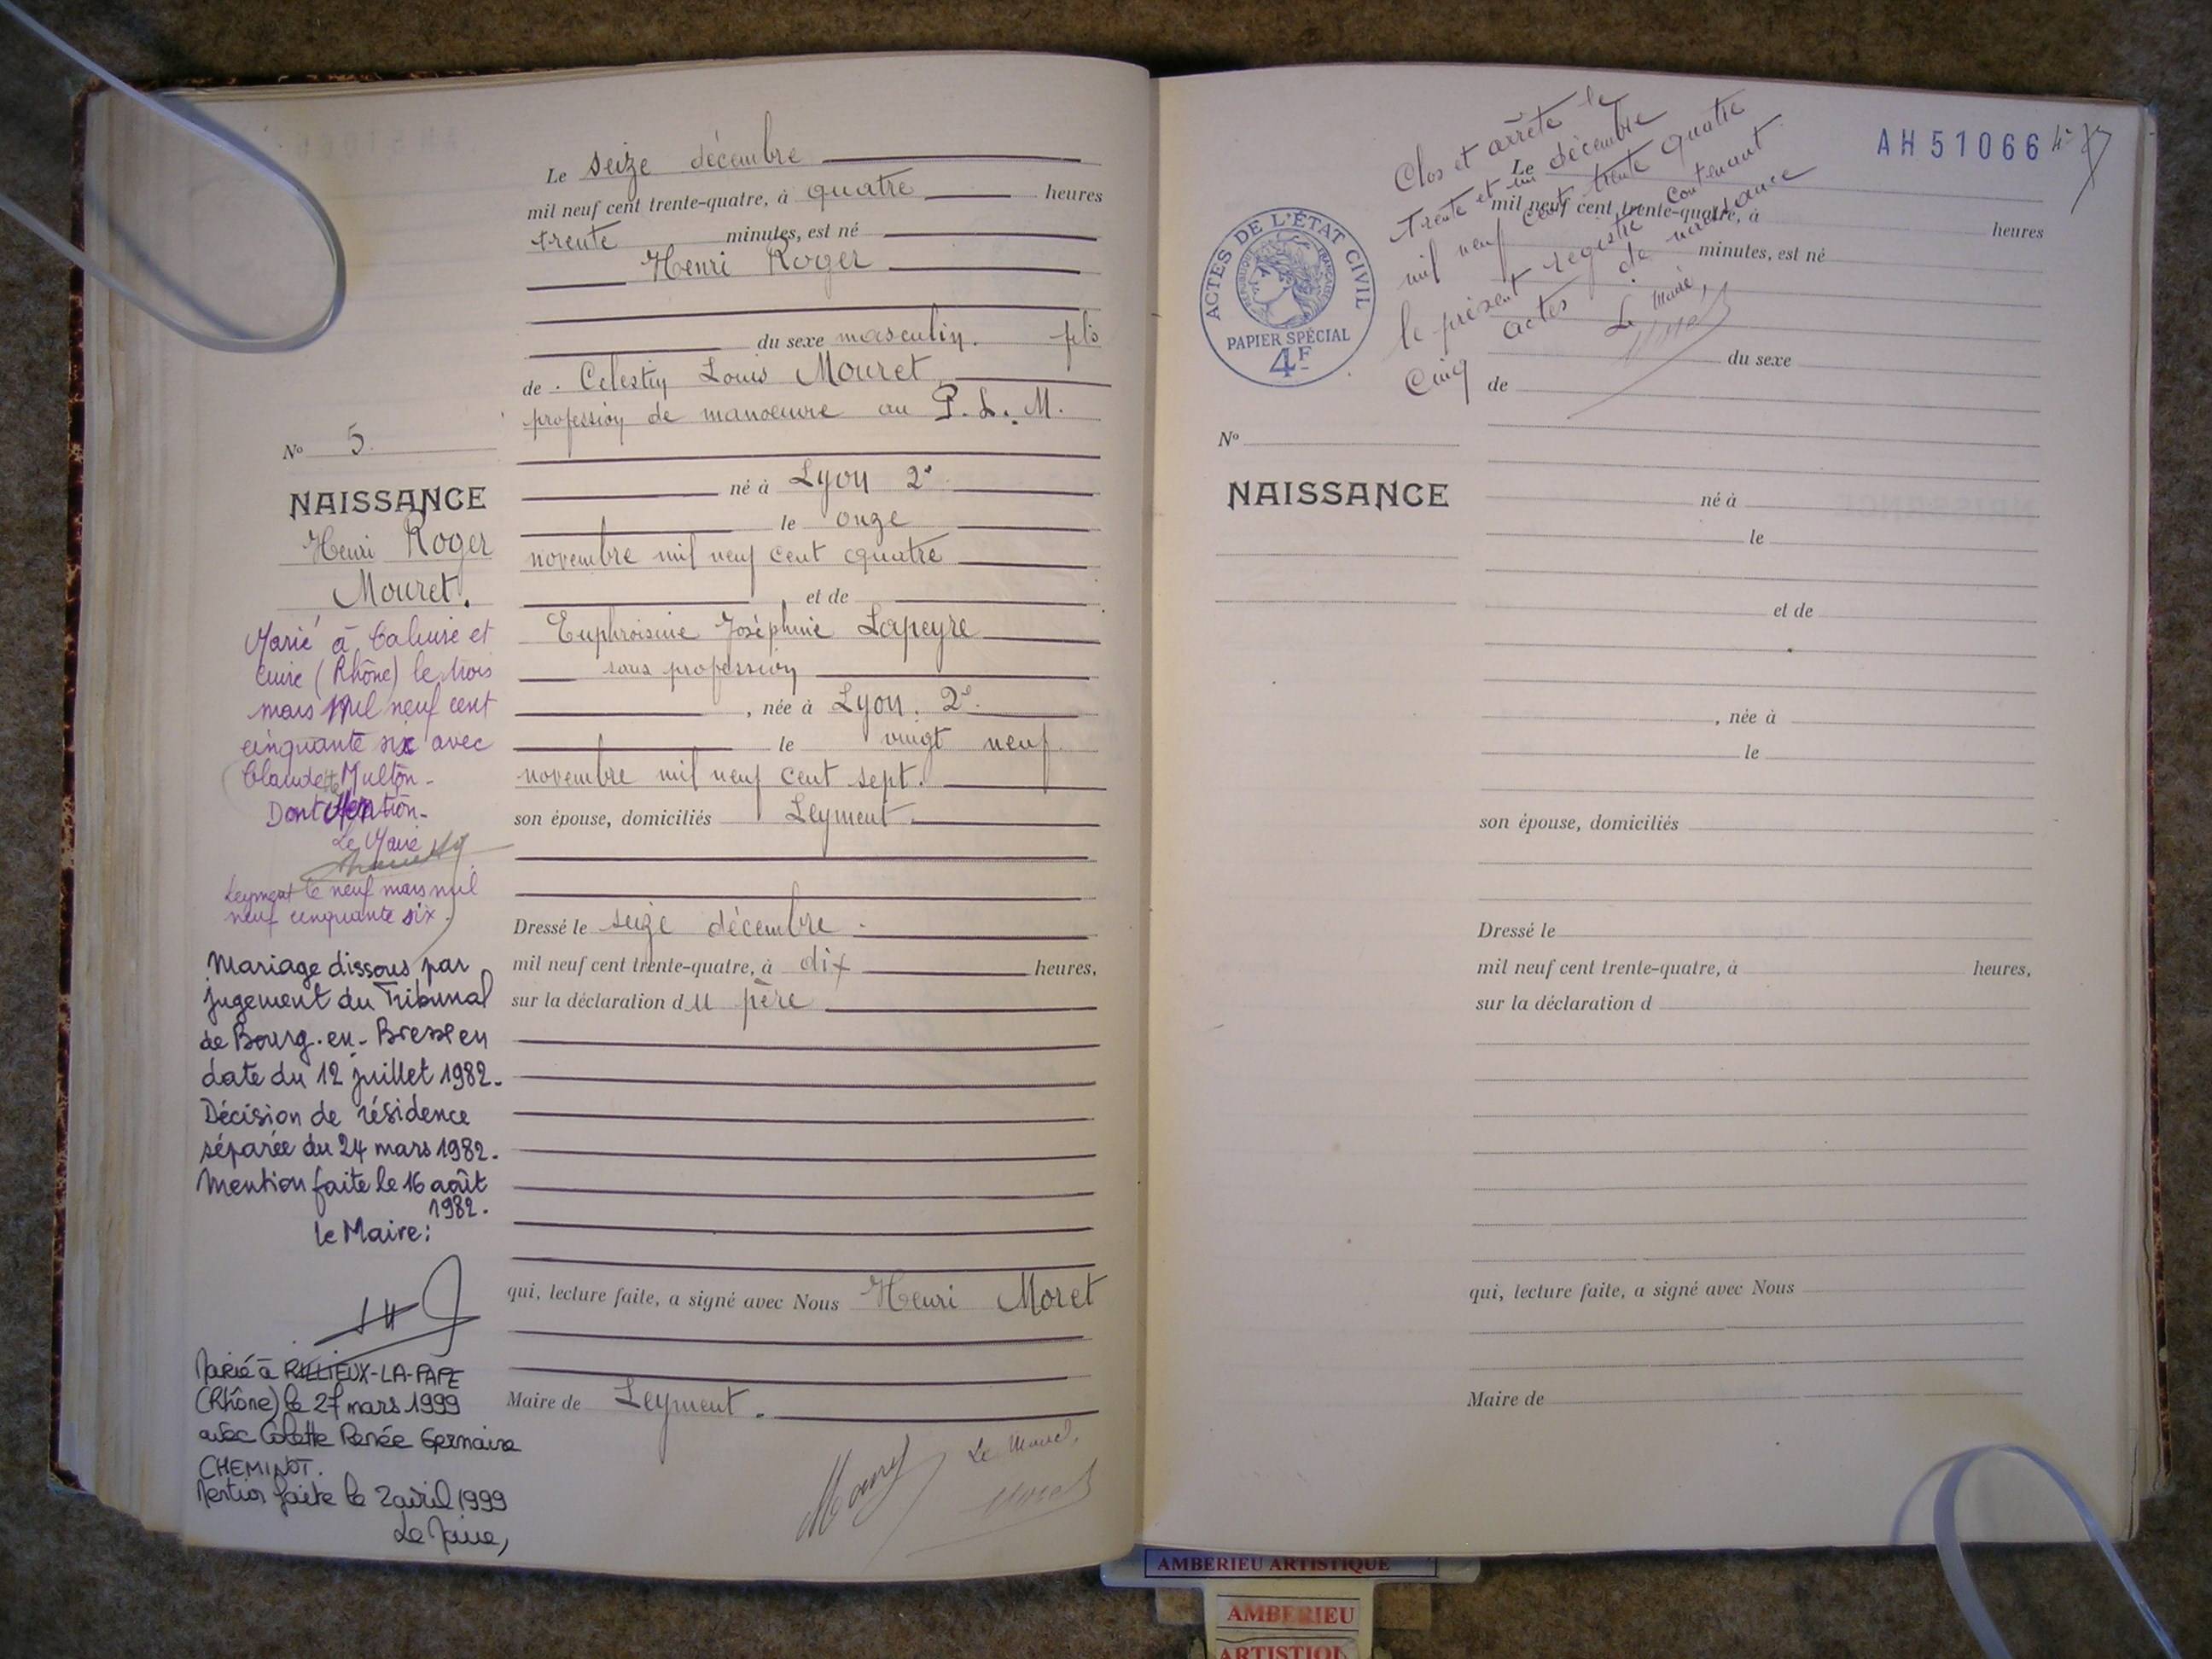 Le seize décembre
mil neuf cent trente-quatre, à quatre heures
trente minutes, est né
Henri Roger
du sexe masculin. fils
de Celestin Louis Mouret
profession de manoeuvre au P. L. M.
né à Lyon 2e
le onze
novembre mil neuf cent quatre
et de
Euphroisine Joséphine Lapeyre
sans profession
, née à Lyon. 2e.
le vingt neuf
novembre mil neuf cent sept.
son épouse, domiciliés Leyment.
Dressé le seize décembre.
mil neuf cent trente-quatre, à dix heures,
sur la déclaration du père
qui, lecture faite, a signé avec Nous Henri Moret
Maire de Leyment.
Le Maire,
Moret
No 5.
NAISSANCE
Henri Roger
Mouret.
Marié à Caluire et
Cuire (Rhône) le trois
mars mil neuf cent
cinquante six avec
Claudette Multon-
Dont Mention-
Le Maire
Leyment le neuf mars mil
neuf cinquante six.
Mariage dissous par
jugement du Tribunal
de Bourg-en-Bresse en
date du 12 juillet 1982.
Décision de résidence
séparée du 24 mars 1982.
Mention faite le 16 août
1982.
le Maire:
Marié à RILLIEUX-LA-PAPE
(Rhône) le 27 mars 1999
avec Colette Renée Germaine
CHEMINOT.
Mention faite le 2 avril 1999
Le Maire,
AH51066
Clos et arrêté le
trente et un décembre
mil neuf cent trente quatre
le présent registre contenant
cinq actes de naissance
Le Maire,
Moret
ACTES DE L'ÉTAT CIVIL
RÉPUBLIQUE FRANÇAISE
PAPIER SPÉCIAL
4F
Le
mil neuf cent trente-quatre, à heures
minutes, est né
du sexe
de
No
NAISSANCE
né à
le
et de
, née à
le
son épouse, domiciliés
Dressé le
mil neuf cent trente-quatre, à heures,
sur la déclaration d
qui, lecture faite, a signé avec Nous
Maire de
AMBERIEU ARTISTIQUE
AMBERIEU